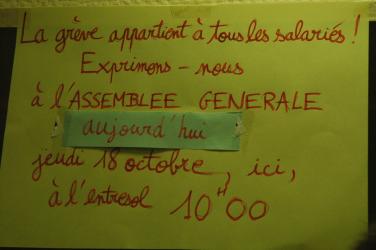 La grève appartient à tous les salariés !
Exprimons - nous
à l'ASSEMBLEE GENERALE
aujourd'hui
jeudi 18 octobre, ici,
à l'entresol 10H00